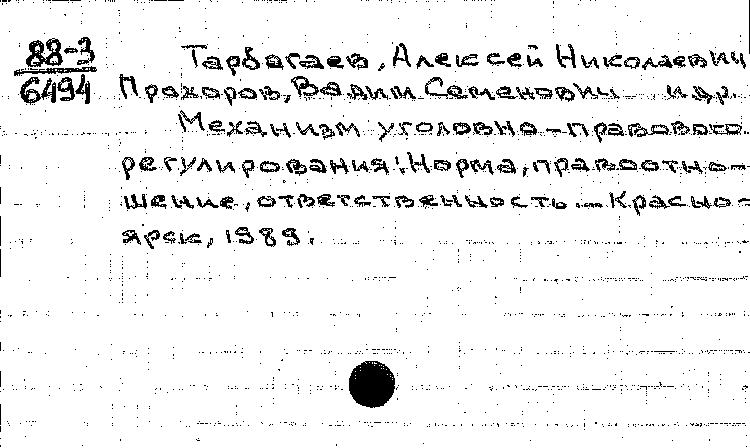 88-3
6494
Тарбагаев, Алексей Николаевич
Прохоров, Вадим Семенович и др.
Механизм уголовно-правового
регулирования: Норма, правоотно-
шение, ответственность. - Красно-
ярск, 1989.